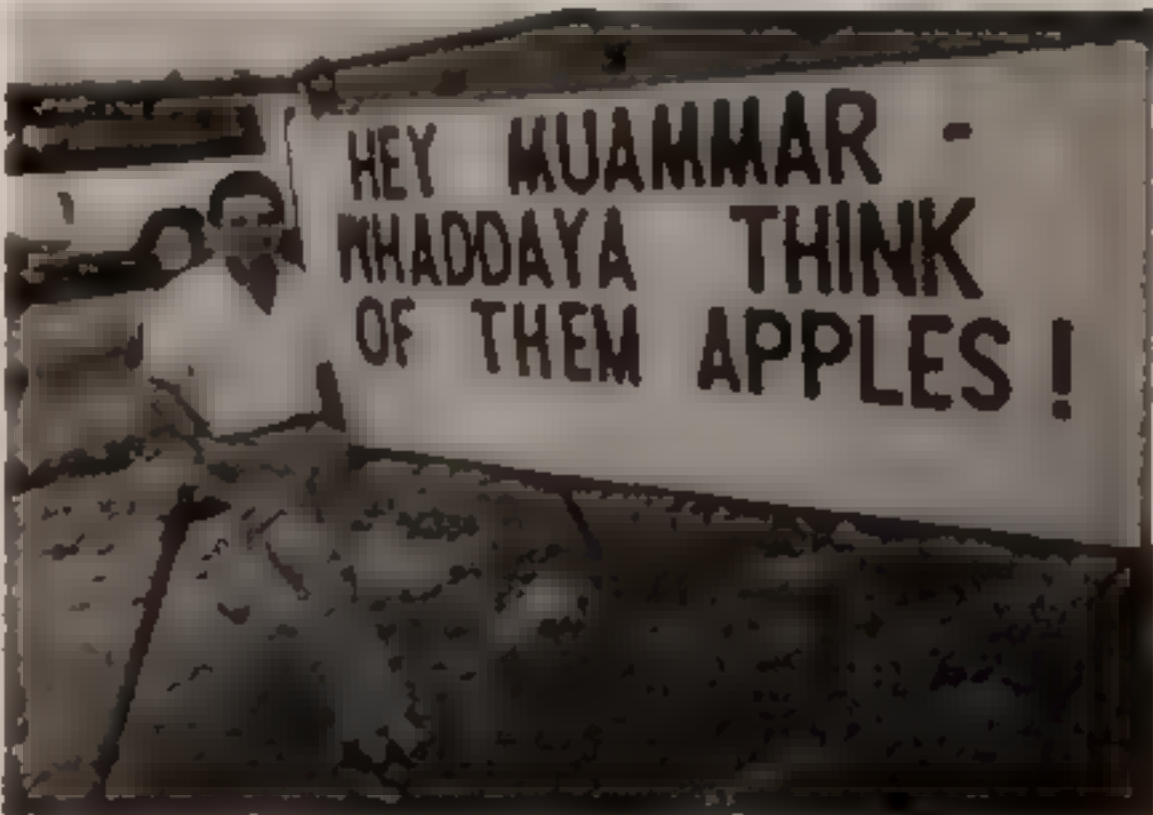 HEY MUAMMAR -
KHADDAYA THINK
OF THEM APPLES!